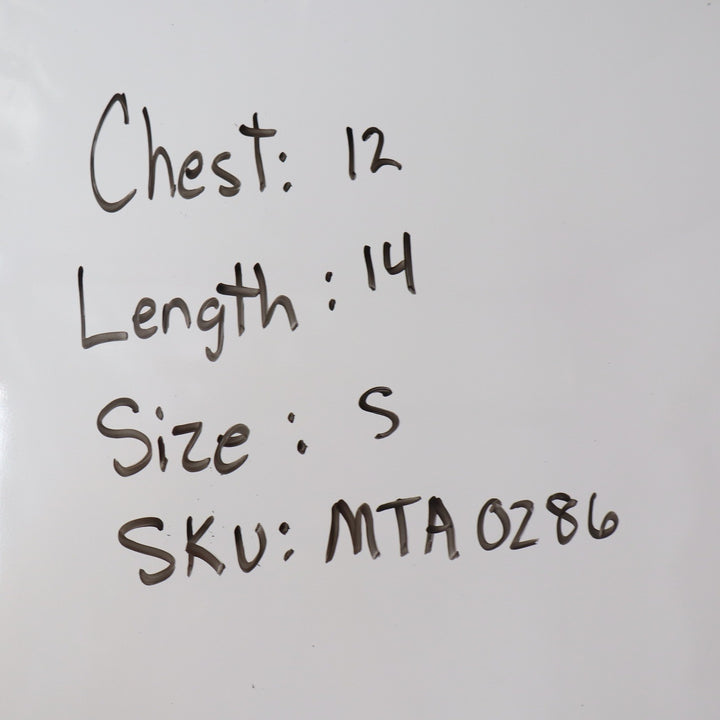 Chest: 12
Length: 14
Size: S
SKU: MTA 0286